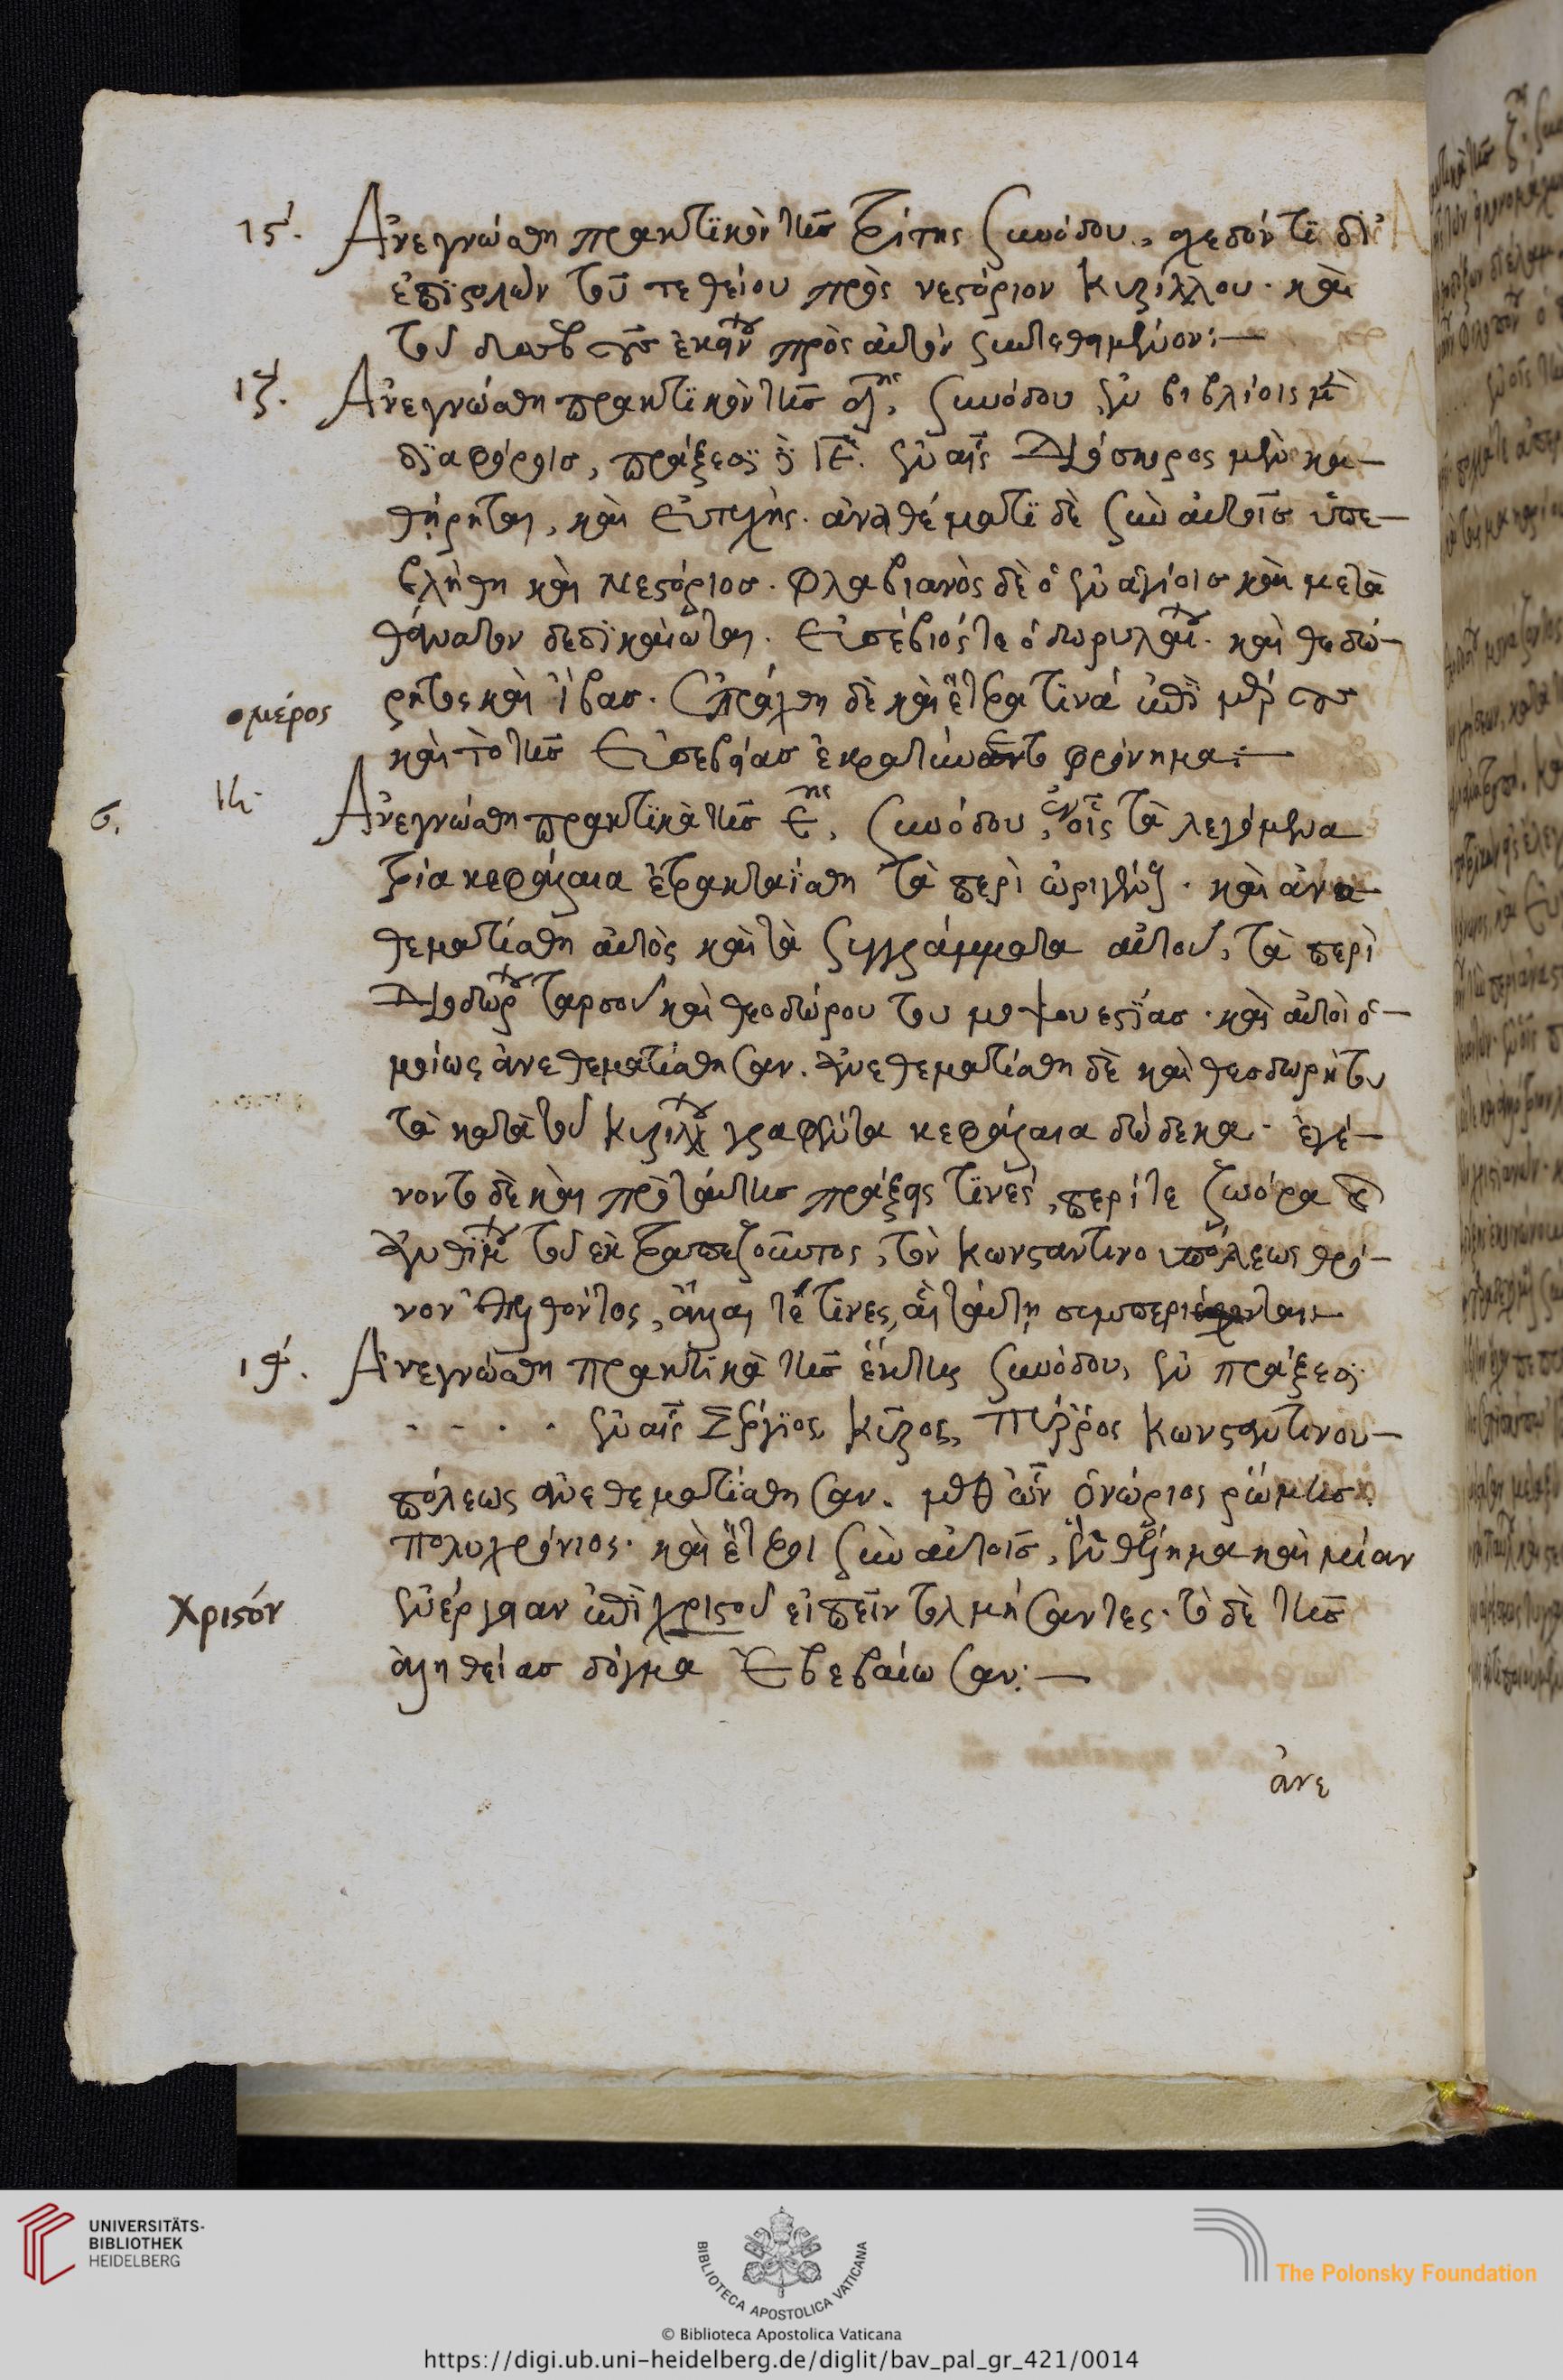 ιϛ´. Ἀνεγνώσθη πρακτικὸν τῆς τρίτης συνόδου, σχεδόν τι δι᾽
ἐπιστολῶν τοῦ τε θείου πρὸς νεστόριον κυρίλλου· καὶ
τοῦ δυσσεβοῦς ἐκείνου πρὸς αὐτὸν συντεθημένον:—
ιζ´. Ἀνεγνώσθη πρακτικὸν τῆς δης, συνόδου ἐν βιβλίοις μὲν
διαφόροις, πράξεσι δὲ ιε. ἐν αἷς Διόσκορος μὲν κα—
θῄρηται, καὶ εὐτυχής. ἀναθέματι δὲ σὺν αὐτοῖς ὑπε—
βλήθη καὶ Νεστόριος. Φλαβιανὸς δὲ ὁ ἐν ἁγίοις καὶ μετὰ
θάνατον δεδικαίωται. Εὐσέβιός τε ὁ δορυλαίου. καὶ θεοδώ—
ρητος καὶ ἴβας. Ἐπράχθη δὲ καὶ ἕτερα τινά ἐπὶ μέρους
ομέρος
καὶ τὸ τῆς Εὐσεβείας ἐκρατύναντο φρόνημα:—
ς. ιη. Ἀνεγνώσθη πρακτικὰ τῆς ε ης, συνόδου, ἐν οἷς τὰ λεγόμενα
τρία κεφάλαια ἐτρακταΐσθη τὰ περὶ ὠριγένους. καὶ ἀνα—
θεματίσθη αὐτὸς καὶ τὰ συγγράμματα αὐτοῦ, τὰ περὶ
Διοδώρου ταρσοῦ καὶ θεοδώρου του μοψουεστίας. καὶ αὐτοὶ ὁ—
μοίως ἀνεθεματίσθησαν. Ἀνεθεματίσθη δὲ καὶ θεοδωρήτου
τὰ κατὰ τοῦ κυρίλλου γραφέντα κεφάλαια δώδεκα. ἐγέ—
νοντο δὲ καὶ πρὸ ταύτης πράξεις τινές, περί τε ζωόρα καὶ
Ἀνθίμου τοῦ ἐκ τραπεζοῦντος, τὸν κωνσταντινουπόλεως θρό—
νον ἐπελθόντος, ἄλλαι τέ τινες, αἳ ταύτῃ συμπεριέχονται:—
ιθ´. Ἀνεγνώσθη πρακτικὰ τῆς ἕκτης συνόδου, ἐν πράξεσι
. . . . ἐν αἷς Σέργιος, κῦρος, Πύρρος κωνσταντινου—
πόλεως ἀνεθεματίσθησαν. μεθ᾽ ὧν ὁνώριος ῥώμης.
πολυχρόνιος. καὶ ἕτεροι σὺν αὐτοῖς, ἓν θέλημα καὶ μίαν
ἐνέργειαν ἐπὶ χριστοῦ εἰπεῖν τολμήσαντες. τὸ δὲ τῆς
χριστόν
ἀληθείας δόγμα Ἐβεβαίωσαν:—
ἀνε
UNIVERSITÄTS-
BIBLIOTHEK
HEIDELBERG
BIBLIOTECA APOSTOLICA VATICANA
The Polonsky Foundation
© Biblioteca Apostolica Vaticana
https://digi.ub.uni-heidelberg.de/diglit/bav_pal_gr_421/0014